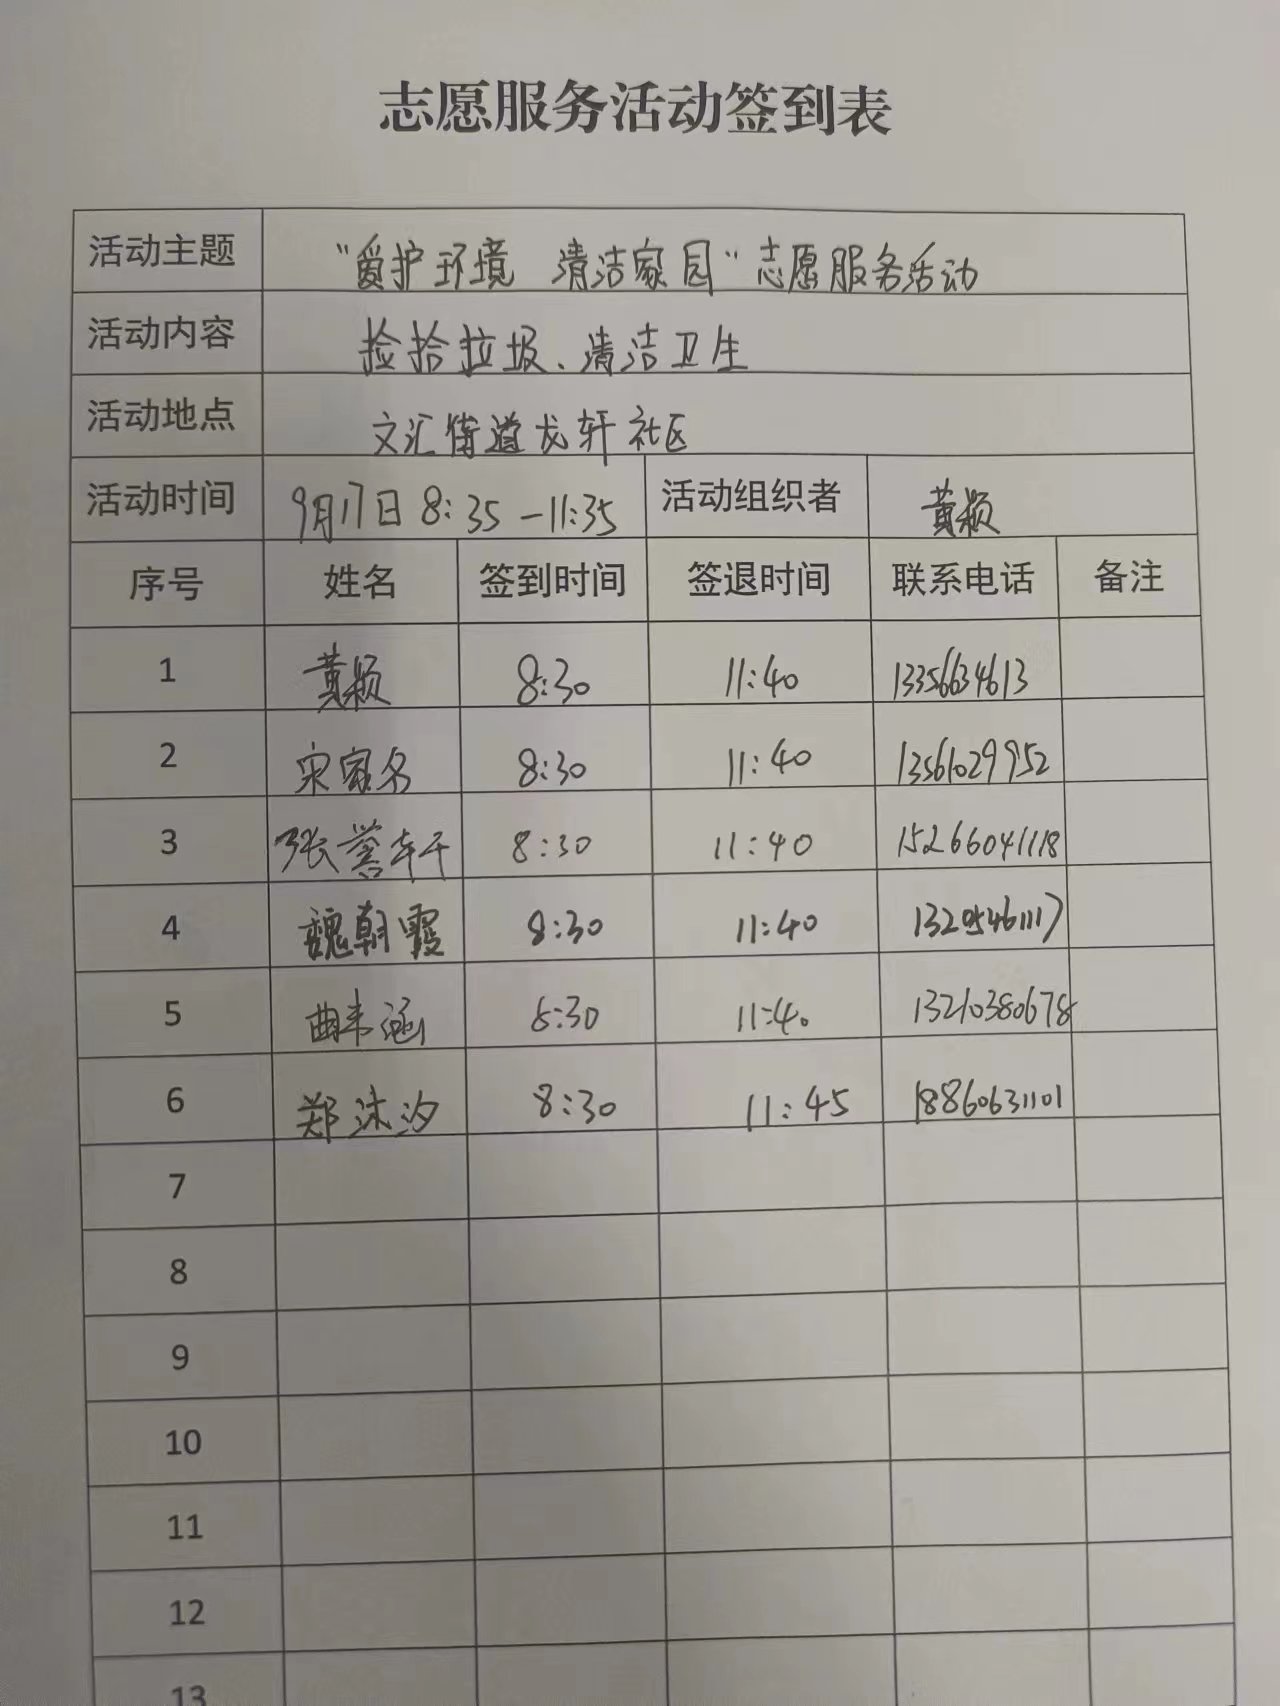 志愿服务活动签到表
活动主题 "爱护环境 清洁家园"志愿服务活动
活动内容 捡拾垃圾、清洁卫生
活动地点 文汇街道龙轩社区
活动时间 9月17日 8:35-11:35 活动组织者 黄颖
序号 姓名 签到时间 签退时间 联系电话 备注
1 黄颖 8:30 11:40 13356634613
2 宋家名 8:30 11:40 13561029952
3 张誉轩 8:30 11:40 15266041118
4 魏朝霞 8:30 11:40
5 8:30 11:40 13210380678
6 郑沐汐 8:30 11:45 18860631101
7
8
9
10
11
12
13